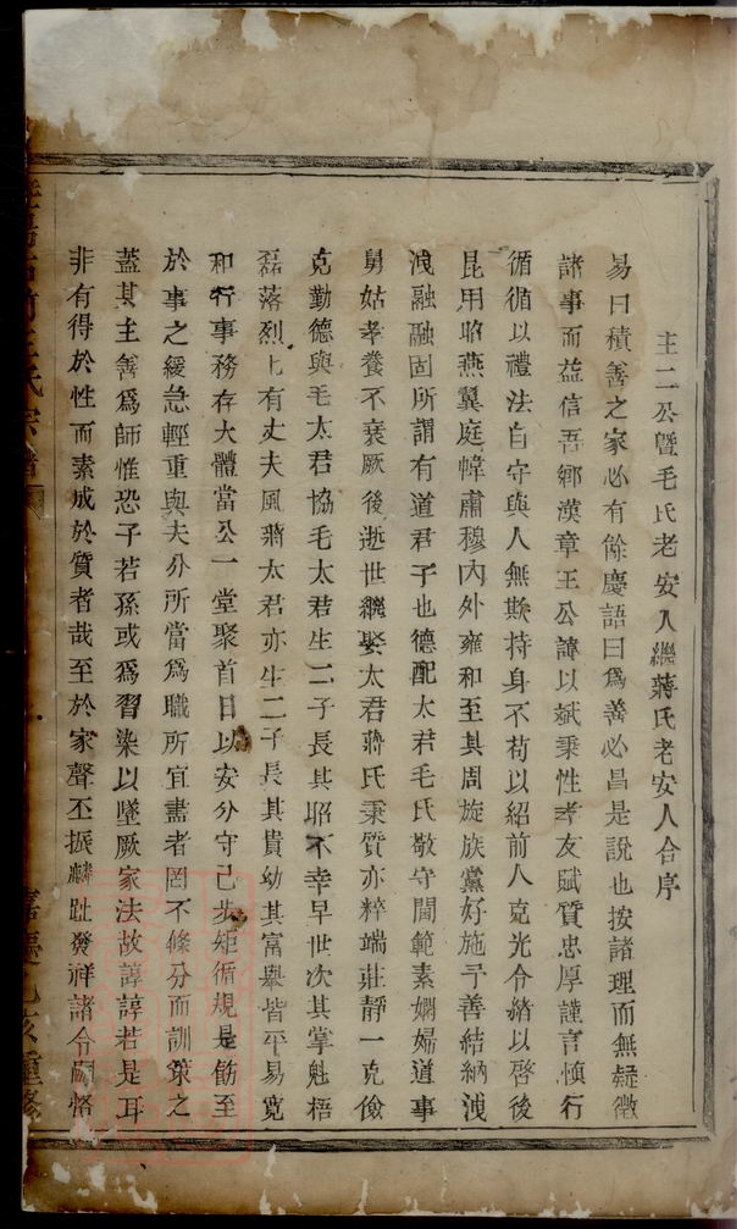 主二公曁毛氏老安人繼蔣氏老安人合序
易曰積善之家必有餘慶語曰爲善必昌是說也按諸理而無疑徵
諸事而益信吾鄉漢章王公諱以斌秉性孝友賦質忠厚謹言愼行
循循以禮法自守與人無欺持身不苟以紹前人克光令緒以啓後
昆用昭燕翼庭幃肅穆內外雍和至其周旋族黨好施予善結納洩
洩融融固所謂有道君子也德配太君毛氏敬守閫範素嫻婦道事
舅姑孝養不衰厥後逝世繼娶太君蔣氏秉質亦粹端莊靜一克儉
克勤德與毛太君協毛太君生二子長其昭不幸早世次其掌魁梧
磊落烈上有丈夫風蔣太君亦生二子長其貴幼其富舉皆平易寬
和行事務存大體當公一堂聚首日以安分守己步矩循規是飭至
於事之緩急輕重與夫分所當爲職所宜盡者罔不條分而訓策之
蓋其主善爲師惟恐子若孫或爲習染以墜厥家法故諄諄若是耳
非有得於性而素成於質者哉至於家聲丕振麟趾發祥諸令嗣恪
王氏宗譜
重修